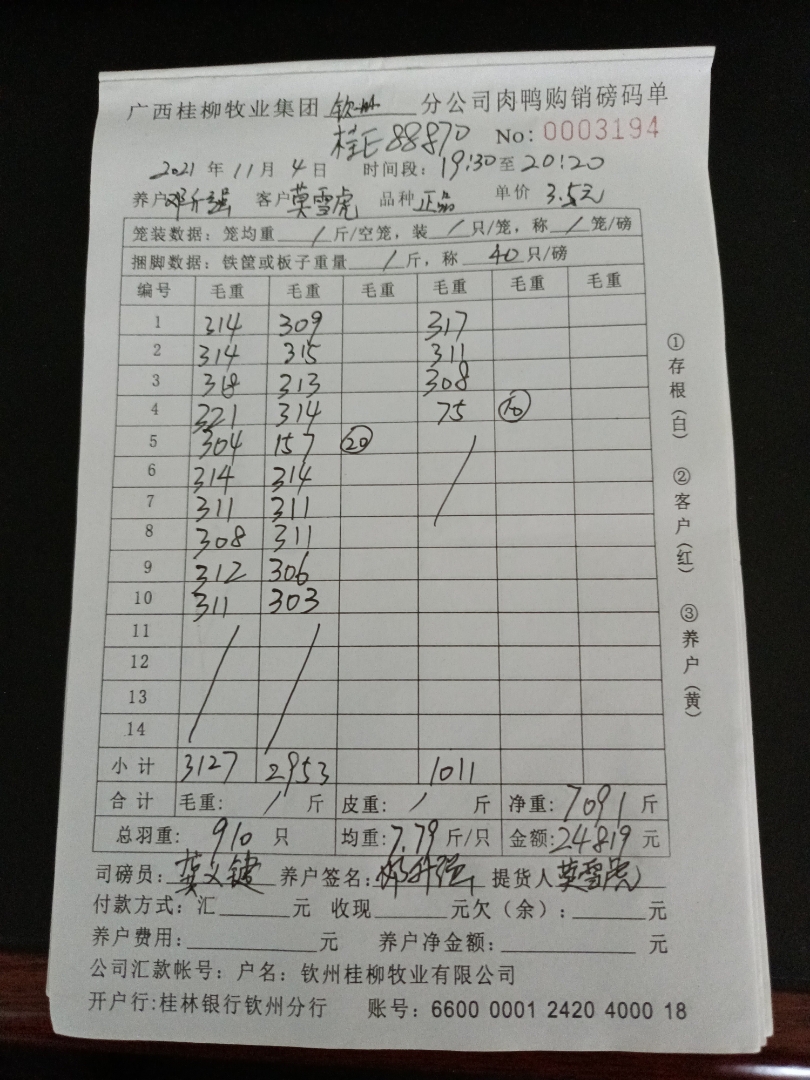 广西桂柳牧业集团 钦州 分公司肉鸭购销磅码单
桂E88870 No: 0003194
2021 年 11 月 4 日 时间段: 19:30 至 20:20
养户 邓升强 客户 莫雪虎 品种 正品 单价 3.5元
笼装数据: 笼均重 / 斤/空笼, 装 / 只/笼, 称 / 笼/磅
捆脚数据: 铁筐或板子重量 / 斤, 称 40 只/磅
编号 毛重 毛重 毛重 毛重 毛重 毛重
1 314 309 317
2 314 315 311
3 318 313 308
4 321 314 75 10
5 304 157 20
6 314 314
7 311 311
8 308 311
9 312 306
10 311 303
11
12
13
14
小计 3127 2953 1011
合计 毛重: / 斤 皮重: / 斤 净重: 7091 斤
总羽重: 910 只 均重: 7.79 斤/只 金额: 24819 元
司磅员: 龚文键 养户签名: 邓升强 提货人 莫雪虎
付款方式: 汇 元 收现 元欠(余): 元
养户费用: 元 养户净金额: 元
公司汇款帐号: 户名: 钦州桂柳牧业有限公司
开户行:桂林银行钦州分行 账号: 6600 0001 2420 4000 18
①存根(白) ②客户(红) ③养户(黄)